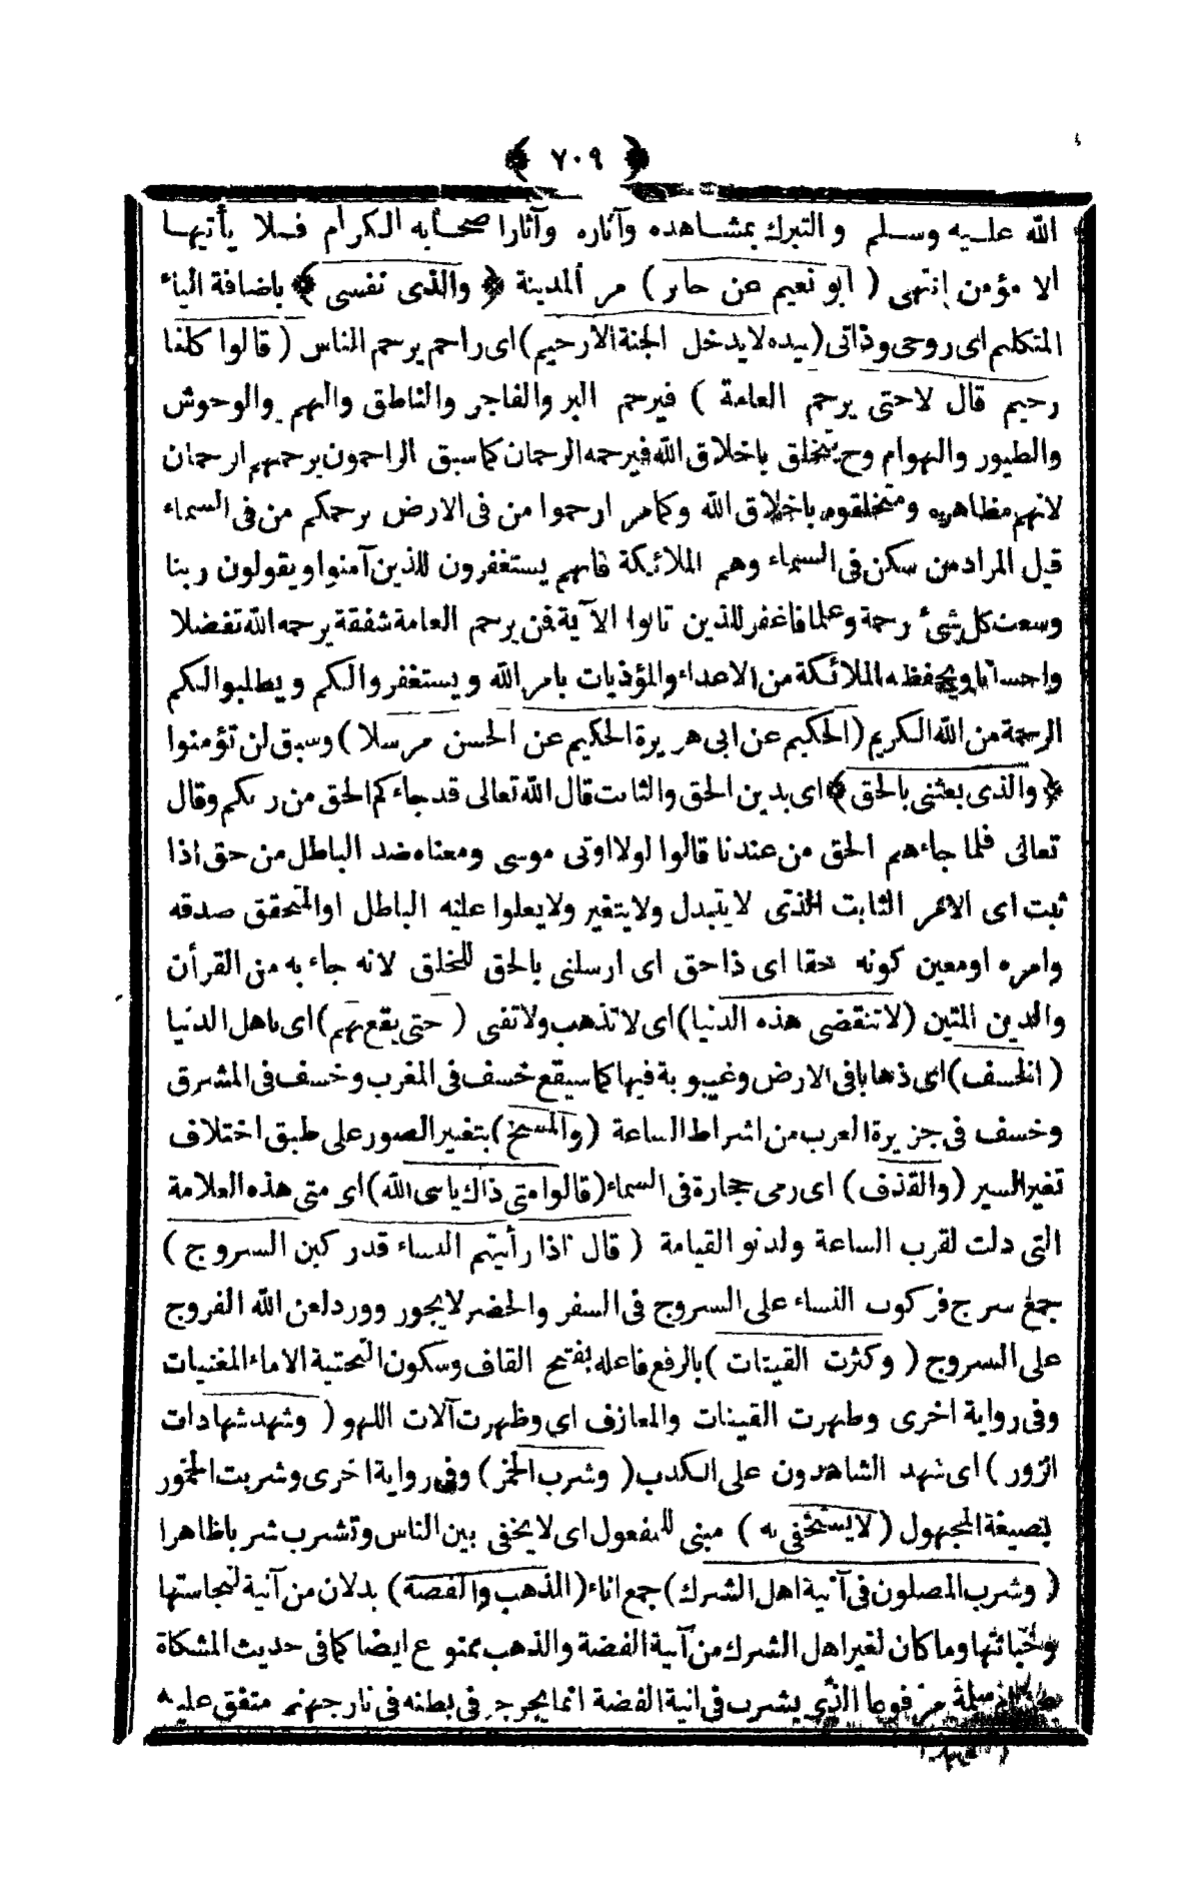 ﴿ ٧٠٩ ﴾
الله عليه وسلم والتبرك بمشاهده وآثاره وآثارا صحابه الكرام فلا يأتيها
الا مؤمن انتهى ( ابو نعيم عن جابر ) مر المدينة ﴿ والذى نفسى ﴾ باضافة الياء
المتكلم اى روحى وذاتى (بيده لايدخل الجنة الارحيم) اى راحم يرحم الناس ( قالوا كلنا
رحيم قال لاحتى يرحم العامة ) فيرحم البر والفاجر والناطق والبهم والوحوش
والطيور والهوام وح يتخلق باخلاق الله فيرحمه الرحمان كما سبق الراحمون يرحمهم ارحمان
لانهم مظاهره ومتخلقوه باخلاق الله وكما مر ارحموا من فى الارض يرحمكم من فى السماء
قيل المراد من سكن فى السماء وهم الملائكة فانهم يستغفرون للذين آمنوا ويقولون ربنا
وسعت كل شئ رحمة وعلما فاغفر للذين تابوا الآية فمن يرحم العامة شفقة يرحمه الله تفضلا
واحسانا ويحفظه الملائكة من الاعداء والمؤذيات بامر الله ويستغفروالكم ويطلبوالكم
الرحمة من الله الكريم (الحكيم عن ابى هريرة الحكيم عن الحسن مرسلا ) وسبق لن تؤمنوا
﴿ والذى بعثنى بالحق ﴾ اى بدين الحق والثابت قال الله تعالى قد جاءكم الحق من ربكم وقال
تعالى فلما جاءهم الحق من عندنا قالوا لولا اوتى موسى ومعناه ضد الباطل من حق اذا
ثبت اى الامر الثابت الذى لايتبدل ولايتغير ولايعلوا عليه الباطل اوالمتحقق صدقه
وامره اومعين كونه حقا اى ذاحق اى ارسلنى بالحق للخلق لانه جاء به من القرأن
والدين المتين (لاتنقضى هذه الدنيا) اى لاتذهب ولاتفنى ( حتى يقع بهم) اى باهل الدنيا
( الخسف) اى ذهابا فى الارض وغيبوبة فيها كما سيقع خسف فى المغرب وخسف فى المشرق
وخسف فى جزيرة العرب من اشراط الساعة (والمسخ) بتغيير الصور على طبق اختلاف
تغير السير (والقذف) اى رمى حجارة فى السماء (قالوا متى ذاك يانبى الله) اى متى هذه العلامة
التى دلت لقرب الساعة ولدنو القيامة ( قال اذا رأيتم النساء قد ركبن السروج )
جمع سرج فركوب النساء على السروج فى السفر والحضر لايجوز وورد لعن الله الفروج
على السروج ( وكثرت القينات ) بالرفع فاعله بفتح القاف وسكون التحتية الاماء المغنيات
وفى رواية اخرى وظهرت القينات والمعازف اى وظهرت آلات اللهو ( وشهد شهادات
الزور ) اى شهد الشاهدون على الكذب ( وشرب الخمر ) وفى رواية اخرى وشربت الخمور
بصيغة المجهول (لايستخفى به ) مبنى للمفعول اى لايخفى بين الناس وتشرب شربا ظاهرا
( وشرب المصلون فى آنية اهل الشرك) جمع اناء (الذهب والفضة) بدلان من آنية لنجاستها
وخباثتها وما كان لغير اهل الشرك من آنية الفضة والذهب ممنوع ايضا كما فى حديث المشكاة
سلمة مرفوعا الذى يشرب فى انية الفضة انما يجرجر فى بطنه فى نار جهنم متفق عليه